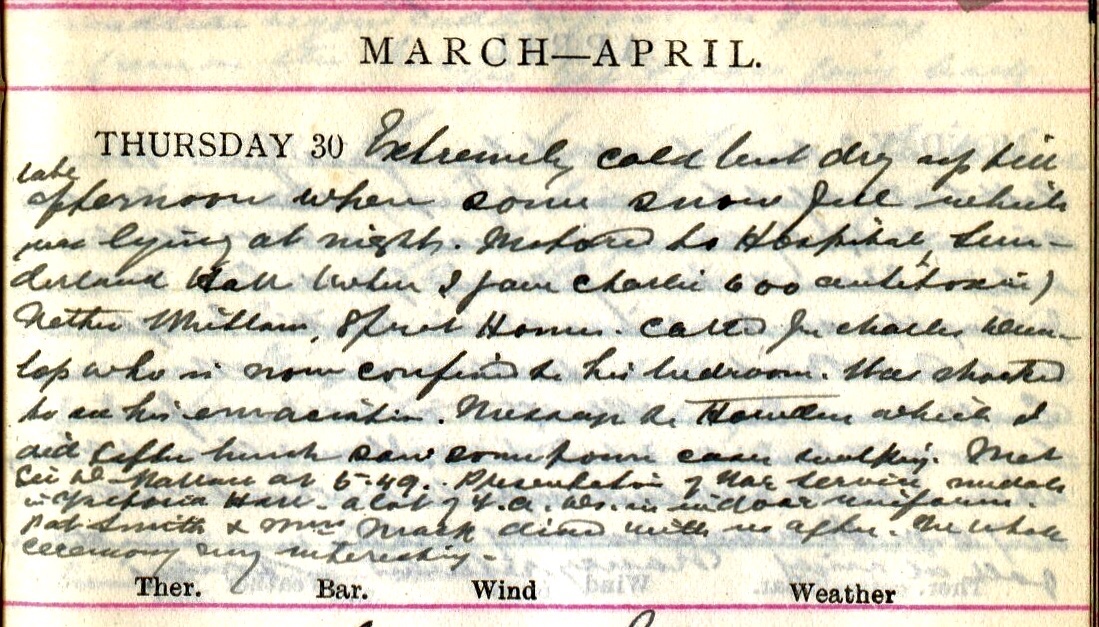 MARCH—APRIL.
THURSDAY 30 Extremely cold but dry up till
late
afternoon when some snow fell which
was lying at night. Motored to Hospital, Sun-
derland Hall (when I gave Charlie 600 antitoxin)
Nether Whitlaw, Homes. Called for Charles Dun-
lop who is now confined to his bedroom. Was shocked
to see his emaciation. Message to Howden which I
did after lunch saw some town cases walking. Met
Sir Wallace at 5-49. Presentation of War Service medals
in Victoria Hall. a lot of V.A.Ds. in indoor uniform.
Pat Smith & Miss Mack dined with us after. The whole
ceremony very interesting.
Ther. Bar. Wind Weather